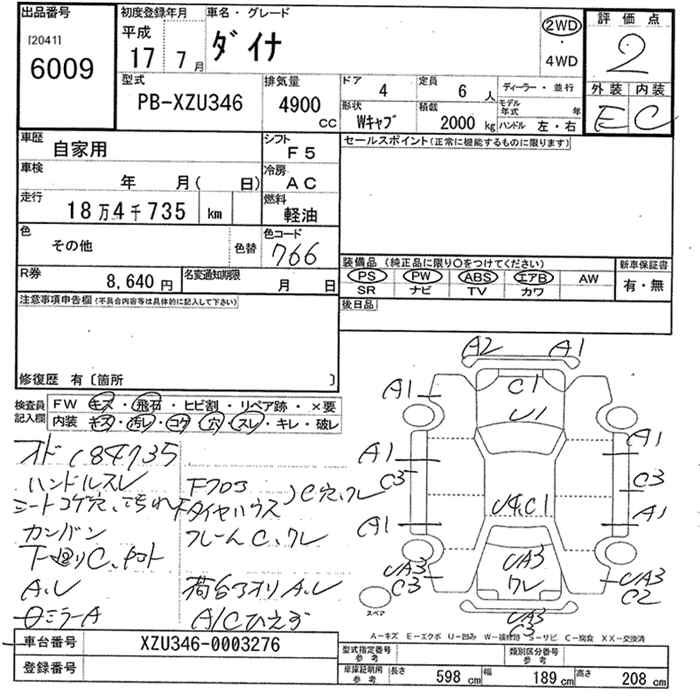 出品番号
[2041]
6009
初度登録年月
平成
17 7月
車名・グレード
ダイナ
2WD
・
4WD
評価点
2
外装 内装
E C
型式
PB-XZU346
排気量
4900 CC
ドア 4
定員 6 人
形状 Wキャブ
積載 2000 kg
ディーラー・並行
モデル年式 年
ハンドル 左・右
車歴
自家用
シフト
F5
車検
年 月( 日)
冷房
AC
走行
18万4千735 km
燃料
軽油
色
その他
色替
色コード
766
R券
8,640円
名変通知期限
月 日
セールスポイント(正常に機能するものに限ります)
装備品(純正品に限り○をつけてください)
PS PW ABS エアB AW
SR ナビ TV カワ
新車保証書
有・無
後日品
注意事項申告欄(不具合内容等は具体的に記入して下さい)
修復歴 有〔箇所 〕
検査員記入欄
FW キズ・飛石・ヒビ割・リペア跡・×要
内装 キズ・汚レ・コゲ・穴・スレ・キレ・破レ
オド184735
ハンドルスレ
シートコゲ穴、
カンバン
下廻りC、
A.U
ミラーA
下フロア
下タイヤハウス
)C穴、クレ
フレームC、クレ
荷台アオリA.U
A/Cひえず
A2 A1
A1
C1
U1
A1
C3
A1
A1
C3
A1
U4、C1
UA3
C3
UA3
クレ
UA3
C2
UA3
C3
スペア
A-キズ E-エクボ U-凹み W-補修跡 S-サビ C-腐食 XX-交換済
車台番号
XZU346-0003276
登録番号
型式指定番号
参考
類別区分番号
参考
車庫証明用
参考
長さ 598 cm
幅 189 cm
高さ 208 cm